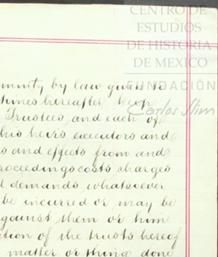 CENTRO DE
ESTUDIOS
DE HISTORIA
DE MEXICO
FUNDACIÓN
Carlos Slim
by law given to
times hereafter keep
Trustees and each of
his heirs executors and
and effects from and
proceedings costs charges
demands whatsoever
be incurred or may be
against them or him
of the trusts hereof
matter or thing done